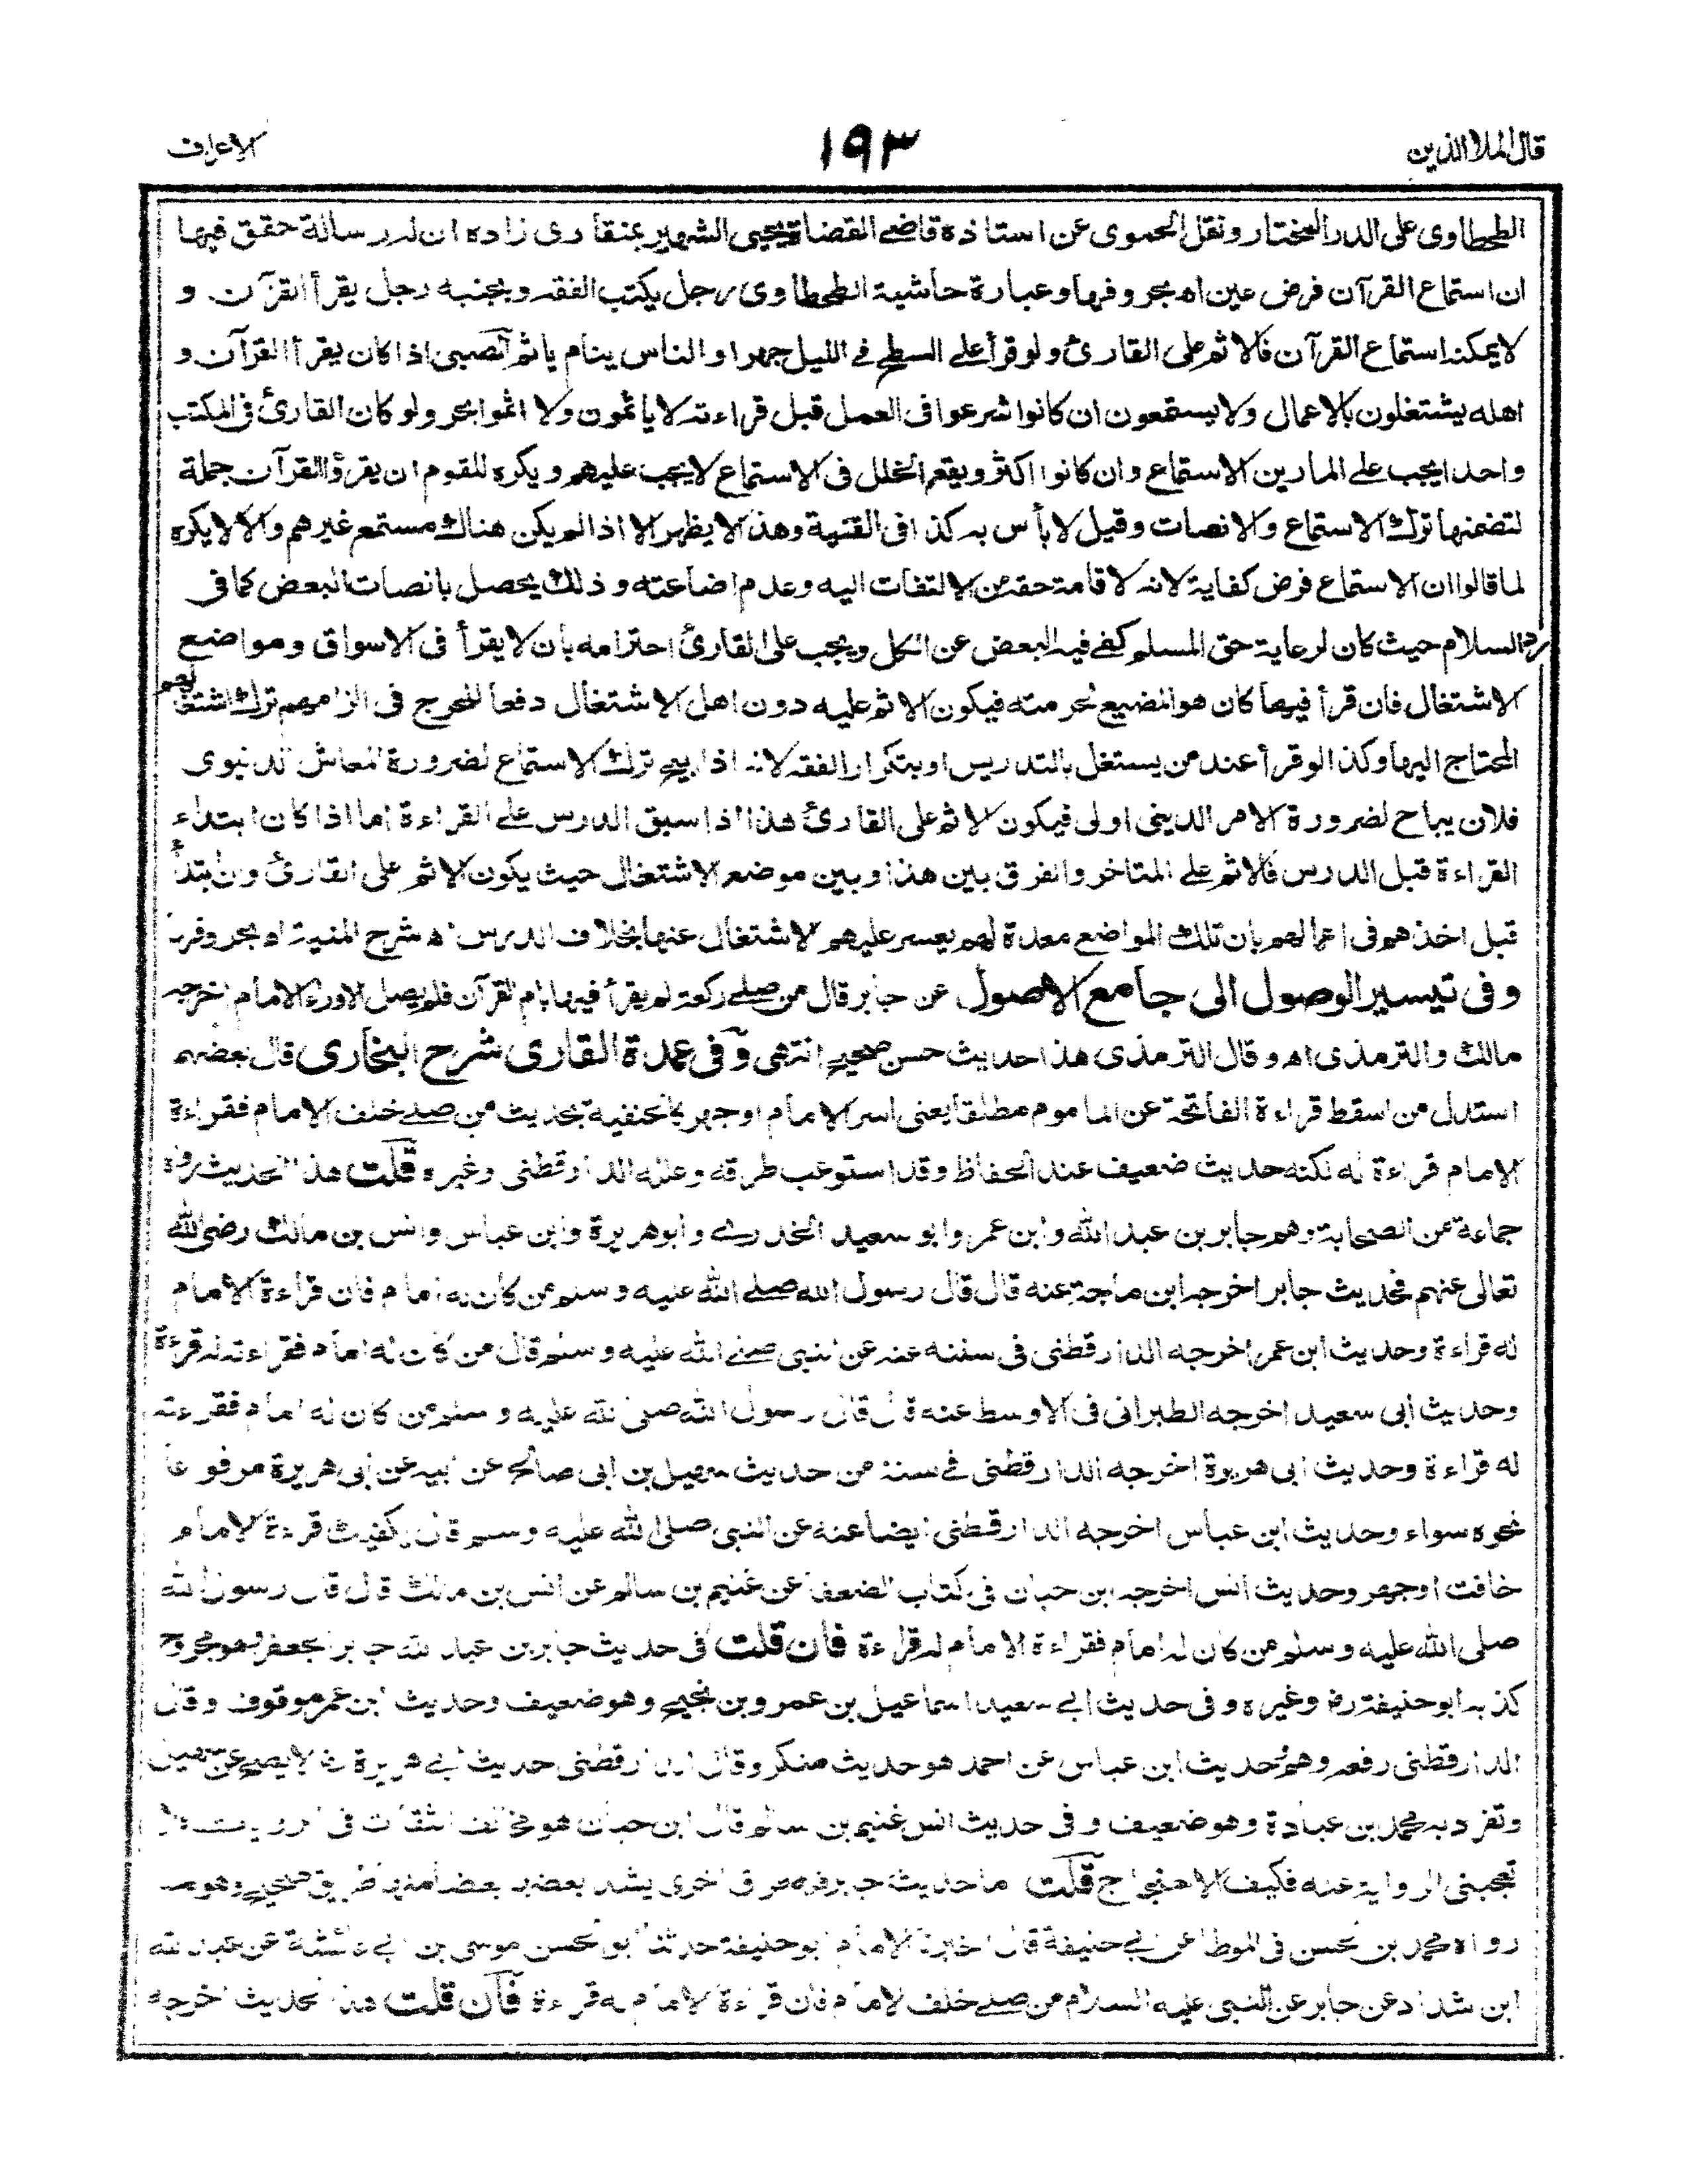 قال الملا الذين
١٩٣
الاعراف
الطحطاوى على الدر المختار ونقل الحموى عن استاذه قاضى القضاة يحيى الشهير بمنقارى زاده ان له رسالة حقق فيها
ان استماع القرآن فرض عين اه بحروفها وعبارة حاشية الطحطاوى رجل يكتب الفقه وبجنبه رجل يقرأ القرآن و
لا يمكنه استماع القرآن فالاثم على القارئ ولو قرأ على السطح فى الليل جهرا والناس ينام ياثم الصبى اذا كان يقرأ القرآن و
اهله يشتغلون بالاعمال ولا يستمعون ان كانوا شرعوا فى العمل قبل قراءته لا ياثمون ولا اثموا بحر ولو كان القارئ فى المكتب
واحدا يجب على المارين الاستماع وان كانوا اكثر ويقع الخلل فى الاستماع لا يجب عليهم ويكره للقوم ان يقرؤا القرآن جملة
لتضمنها ترك الاستماع والانصات وقيل لا بأس به كذا فى القنية وهذا لا يظهر الا اذا لم يكن هناك مستمع غيرهم والا لا يكره
لما قالوا ان الاستماع فرض كفاية لانه لاقامة حقه من الالتفات اليه وعدم اضاعته وذلك يحصل بانصات البعض كما فى
رد السلام حيث كان لرعاية حق المسلم كفى فيه البعض عن الكل ويجب على القارئ احترامه بأن لا يقرأ فى الاسواق ومواضع
الاشتغال فان قرأ فيها كان هو المضيع لحرمته فيكون الاثم عليه دون اهل الاشتغال دفعا للحرج فى الزامهم ترك اشتغالهم
المحتاج اليها وكذا لو قرأ عند من يستغل بالتدريس او بتكرار الفقه لانه اذا ابيح ترك الاستماع لضرورة المعاش الدنيوى
فلان يباح لضرورة الامر الدينى اولى فيكون الاثم على القارئ هذا اذا سبق الدرس على القراءة اما اذا كان ابتداء
القراءة قبل الدرس فالاثم على المتاخر والفرق بين هذا وبين موضع الاشتغال حيث يكون الاثم على القارئ وان ابتدأ
قبل اخذهم فى اعمالهم بان تلك المواضع معدة لهم يعسر عليهم الاشتغال عنها بخلاف الدرس اه شرح المنية اه بحروفها
وفى تيسير الوصول الى جامع الاصول عن جابر قال من صلى ركعة لم يقرأ فيها بام القرآن فلم يصل الا وراء الامام اخرجه
مالك والترمذى اه وقال الترمذى هذا حديث حسن صحيح انتهى وفى عمدة القارى شرح البخارى قال بعضهم
استدل من اسقط قراءة الفاتحة عن الماموم مطلقا يعنى اسر الامام او جهر كالحنفية بحديث من صلى خلف الامام فقراءة
الامام قراءة له لكنه حديث ضعيف عند الحفاظ وقد استوعب طرقه وعلله الدارقطنى وغيره قلت هذا الحديث رواه
جماعة من الصحابة وهم جابر بن عبد الله وابن عمر وابو سعيد الخدرى وابو هريرة وابن عباس وانس بن مالك رضى الله
تعالى عنهم فحديث جابر اخرجه ابن ماجة عنه قال قال رسول الله صلى الله عليه وسلم من كان له امام فان قراءة الامام
له قراءة وحديث ابن عمر اخرجه الدارقطنى فى سننه عنه عن النبى صلى الله عليه وسلم قال من كان له امام فقراءته له قراءة
وحديث ابى سعيد اخرجه الطبرانى فى الاوسط عنه قال قال رسول الله صلى الله عليه وسلم من كان له امام فقراءته
له قراءة وحديث ابى هريرة اخرجه الدارقطنى فى سننه من حديث سهيل بن ابى صالح عن ابيه عن ابى هريرة مرفوعا
نحوه سواء وحديث ابن عباس اخرجه الدارقطنى ايضا عنه عن النبى صلى الله عليه وسلم قال يكفيك قراءة الامام
خافت او جهر وحديث انس اخرجه ابن حبان فى كتاب الضعفا عن غنيم بن سالم عن انس بن مالك قال قال رسول الله
صلى الله عليه وسلم من كان له امام فقراءة الامام له قراءة فان قلت فى حديث جابر بن عبد الله جابر الجعفى وهو مجروح
كذبه ابو حنيفة رض وغيره وفى حديث ابى سعيد اسماعيل بن عمرو بن نجيح وهو ضعيف وحديث ابن عمر موقوف وقال
الدارقطنى رفعه وهم وحديث ابن عباس عن احمد هو حديث منكر وقال الدارقطنى حديث ابى هريرة لا يصح عن سهيل
وتفرد به محمد بن عبادة وهو ضعيف وفى حديث انس غنيم بن سالم قال ابن حبان هو مخالف الثقات فى الروايات لا
تعجبنى الرواية عنه فكيف الاحتجاج قلت اما حديث جابر فله طرق اخرى يشد بعضها بعضا منها طريق صحيح وهو ما
رواه محمد بن الحسن فى الموطا عن ابى حنيفة قال اخبرنا الامام ابو حنيفة حدثنا ابو الحسن موسى بن ابى عائشة عن عبد الله
ابن شداد عن جابر عن النبى عليه السلام من صلى خلف الامام فان قراءة الامام له قراءة فان قلت هذا الحديث اخرجه